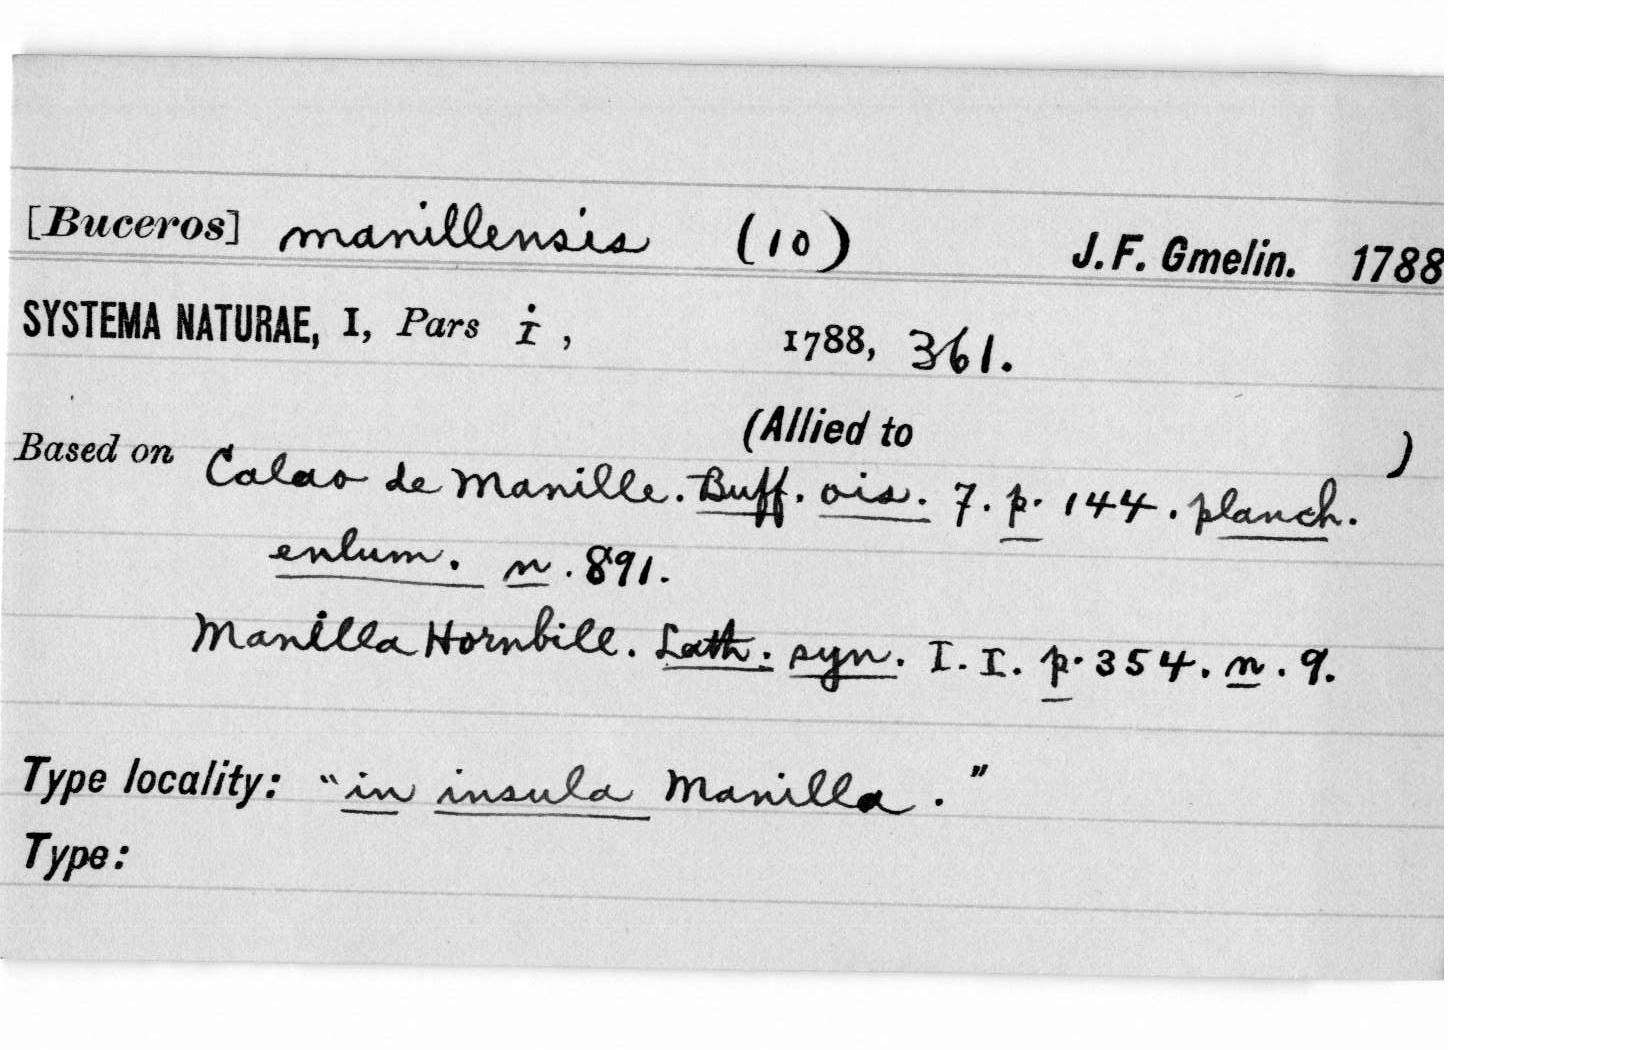 [Buceros] manillensis (10) J. F. Gmelin. 1788
SYSTEMA NATURAE, I, Pars i, 1788, 361.
(Allied to )
Based on Calao de Manille. Buff. ois. 7. p. 144. planch.
enlum. n. 891.
Manilla Hornbill. Lath. syn. I. I. p. 354. n. 9.
Type locality: "in insula Manilla."
Type: